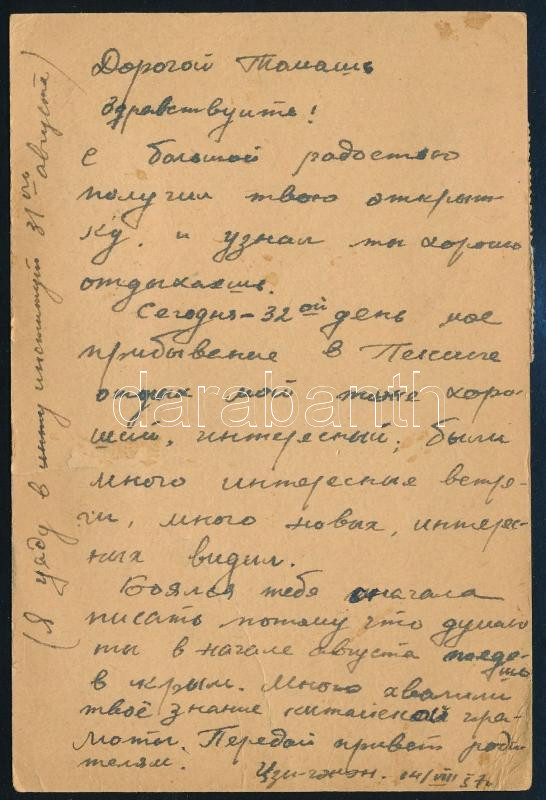 Дорогой Тамашь
Здравствуите!
с большой радостью
получил твою открыт-
ку. и узнал ты хорошо
отдыхаешь.
Сегодня - 32ой день мое
прибывение в Пекине
отдых мой тоже хоро-
ший, интересный, были
много интересные встре-
чи, много новых, интерес-
ных видил.
Боялся тебя сначала
писать потому что думаю
ты в начале августа поеде-
шь
в Крым. Много хвалили
твоё знание китайской гра-
моты. Передай привет роди-
телям. Цзи- 04/VIII 57г.
(Я уеду в институт 31го августа)
darabanth